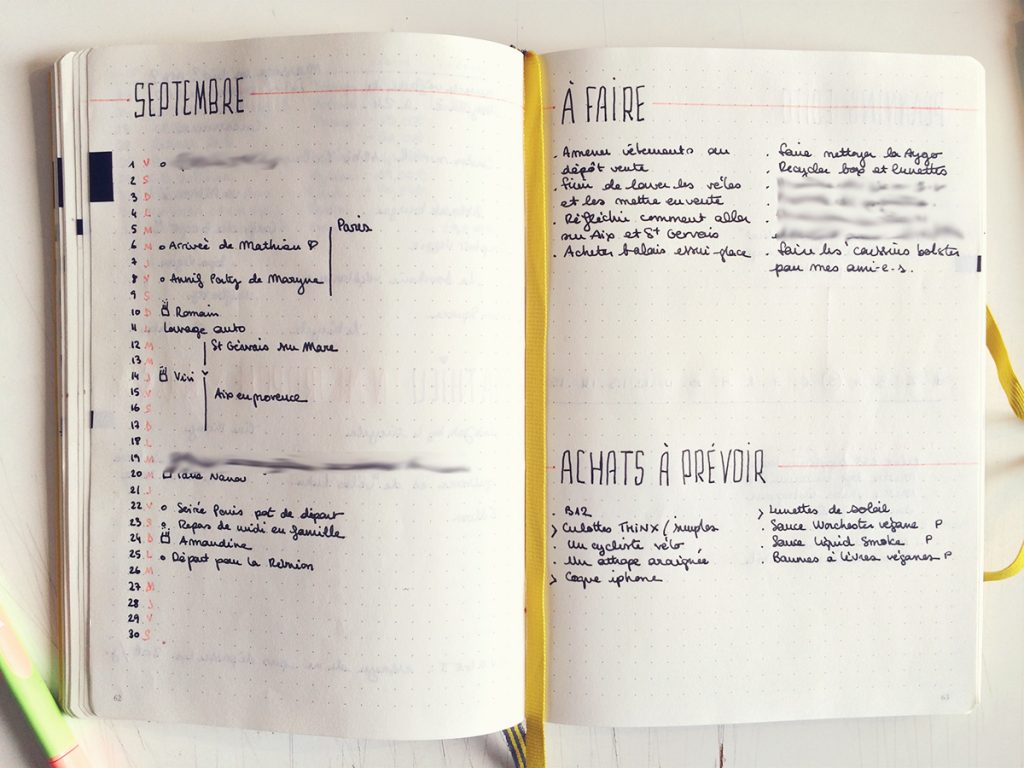 SEPTEMBRE
1 V
2 S
3 D
4 L
5 M
Paris
6 M Arrivée de Mathieu
7 J
8 V Annif Party de Maryne
9 S
10 D Romain
11 L Lavage auto
12 M St Gervais sur Mare
13 M
14 J Vivi
15 V Aix en provence
16 S
17 D
18 L
19 M
20 M
21 J
22 V Soirée Paris pot de départ
23 S Repas de midi en famille
24 D Amandine
25 L Départ pour la Réunion
26 M
27 M
28 J
29 V
30 S
62
À FAIRE
. Amener vêtements au
dépôt vente
. Finir de laver les vélos
et les mettre en vente
. Réfléchir comment aller
sur Aix et St Gervais
. Acheter balais essui-place
. Faire nettoyer la Aygo
. Recycler box et lunettes
. Faire les coussins bolster
pour mes ami-e-s.
ACHATS À PRÉVOIR
. B12
> Culottes THINX / simples
. Un cycliste vélo
. Un attrape araignée
> Coque iphone
> Lunettes de soleil
. Sauce Worchester végane P
. Sauce Liquid Smoke P
. Baumes à lèvres véganes P
63